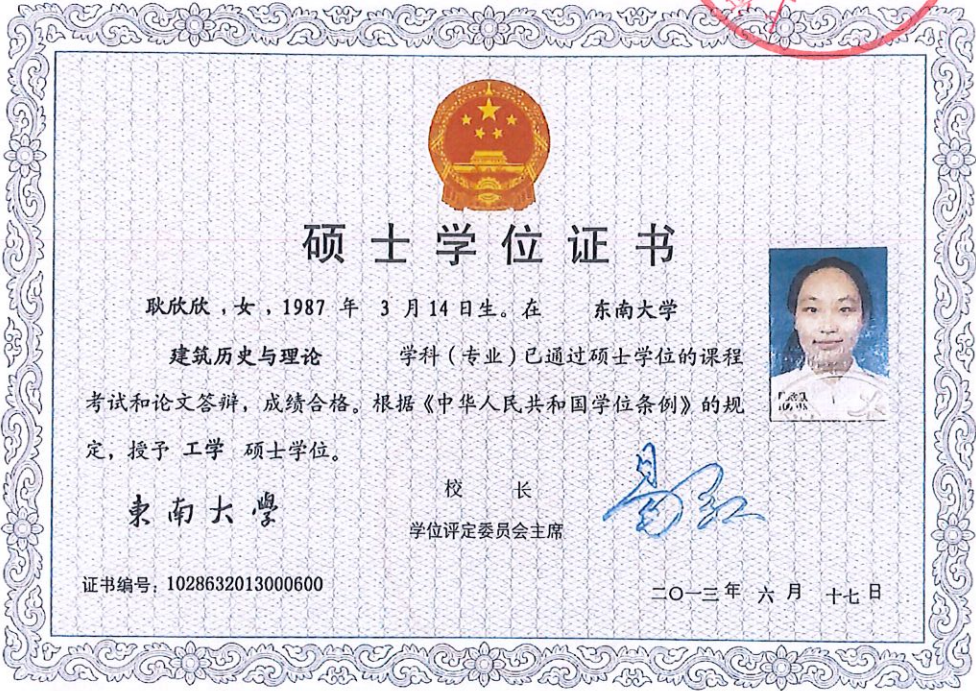 硕士学位证书
耿欣欣,女,1987 年 3 月 14 日生。在 东南大学
建筑历史与理论 学科(专业)已通过硕士学位的课程
考试和论文答辩,成绩合格。根据《中华人民共和国学位条例》的规
定,授予 工学 硕士学位。
東南大學
校 长
学位评定委员会主席
易红
证书编号:1028632013000600
二〇一三年 六月 十七日